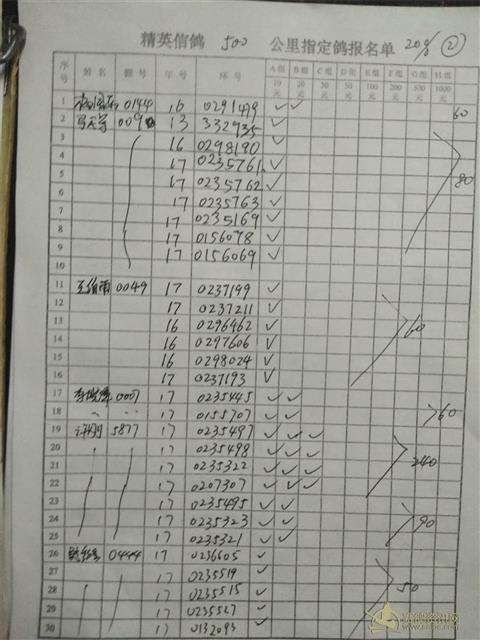 精英信鸽 500 公里指定鸽报名单 20% ②
序号 姓名 棚号 年号 环号 A组 B组 C组 D组 E组 F组 G组 H组
10元 20元 30元 50元 100元 200元 500元 1000元
1 0144 16 0291479 ✓ ✓ 60
2 13 332935 ✓
3 16 0298190 ✓
4 17 0235761 ✓
5 17 0235762 ✓ 80
6 17 0235763 ✓
7 17 0235169 ✓
8 17 0156078 ✓
9 17 0156069 ✓
10
11 0049 17 0237199 ✓
12 17 0237211 ✓
13 16 0296462 ✓ 60
14 16 0297606 ✓
15 16 0298024 ✓
16 17 0237193 ✓
17 0007 17 0235445 ✓ ✓
18 17 0155707 ✓ ✓ 60
19 5877 17 0235497 ✓ ✓ ✓
20 17 0235498 ✓ ✓ ✓
21 17 0235322 ✓ ✓ ✓ 240
22 17 0207307 ✓ ✓ ✓
23 17 0235495 ✓ ✓
24 17 0235323 ✓ ✓ 90
25 17 0235321 ✓ ✓
26 0444 17 0236605 ✓
27 17 0235519 ✓
28 17 0235515 ✓ 50
29 17 0235527 ✓
30 17 0132093 ✓